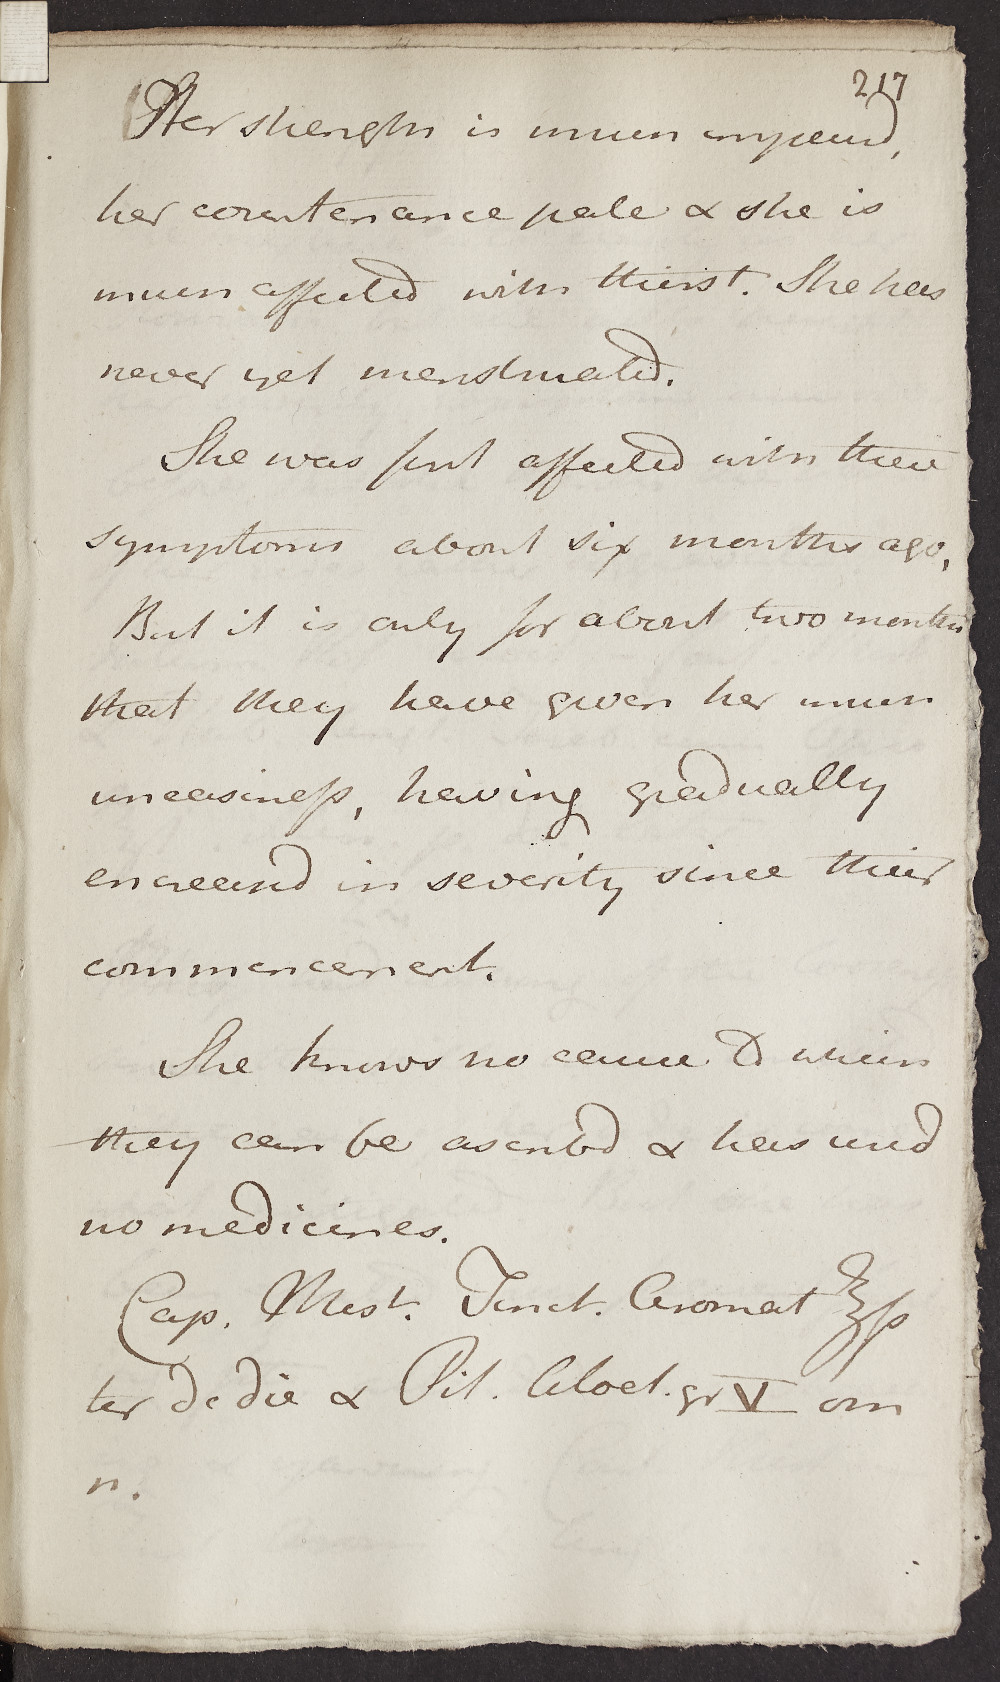 217
Her strength is much impaird,
her countenance pale & she is
much affected with thirst. She has
never yet menstruated.
She was first affected with these
symptoms about six months ago,
But it is only for about two months
that they have given her much
uneasiness, having gradually
encreased in severity since their
commencement.
She knows no cause to which
they can be ascribd & has used
no medicines.
Cap. Mist. Tinct. Aromat ℥ss
ter de die & Pil. Aloet. gr V om
n.